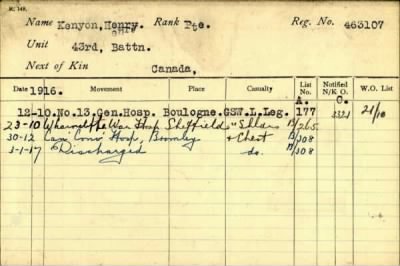 M. 149.
Name Kenyon, Henry. Rank Pte. Reg. No. 463107
Unit 43rd, Battn.
Next of Kin
Canada,
Date 1916. Movement Place Casualty List No. Notified N/K O. W.O. List
A. O.
12-10. No. 13. Gen. Hosp. Boulogne. GSW. L. Leg. 177 3321 21/10
23-10 Wharncliffe War Hosp Sheffield " B/265
30-12 Can Conv Hosp, Bromley & Chest B/308
3-1-17 Discharged do. B/308